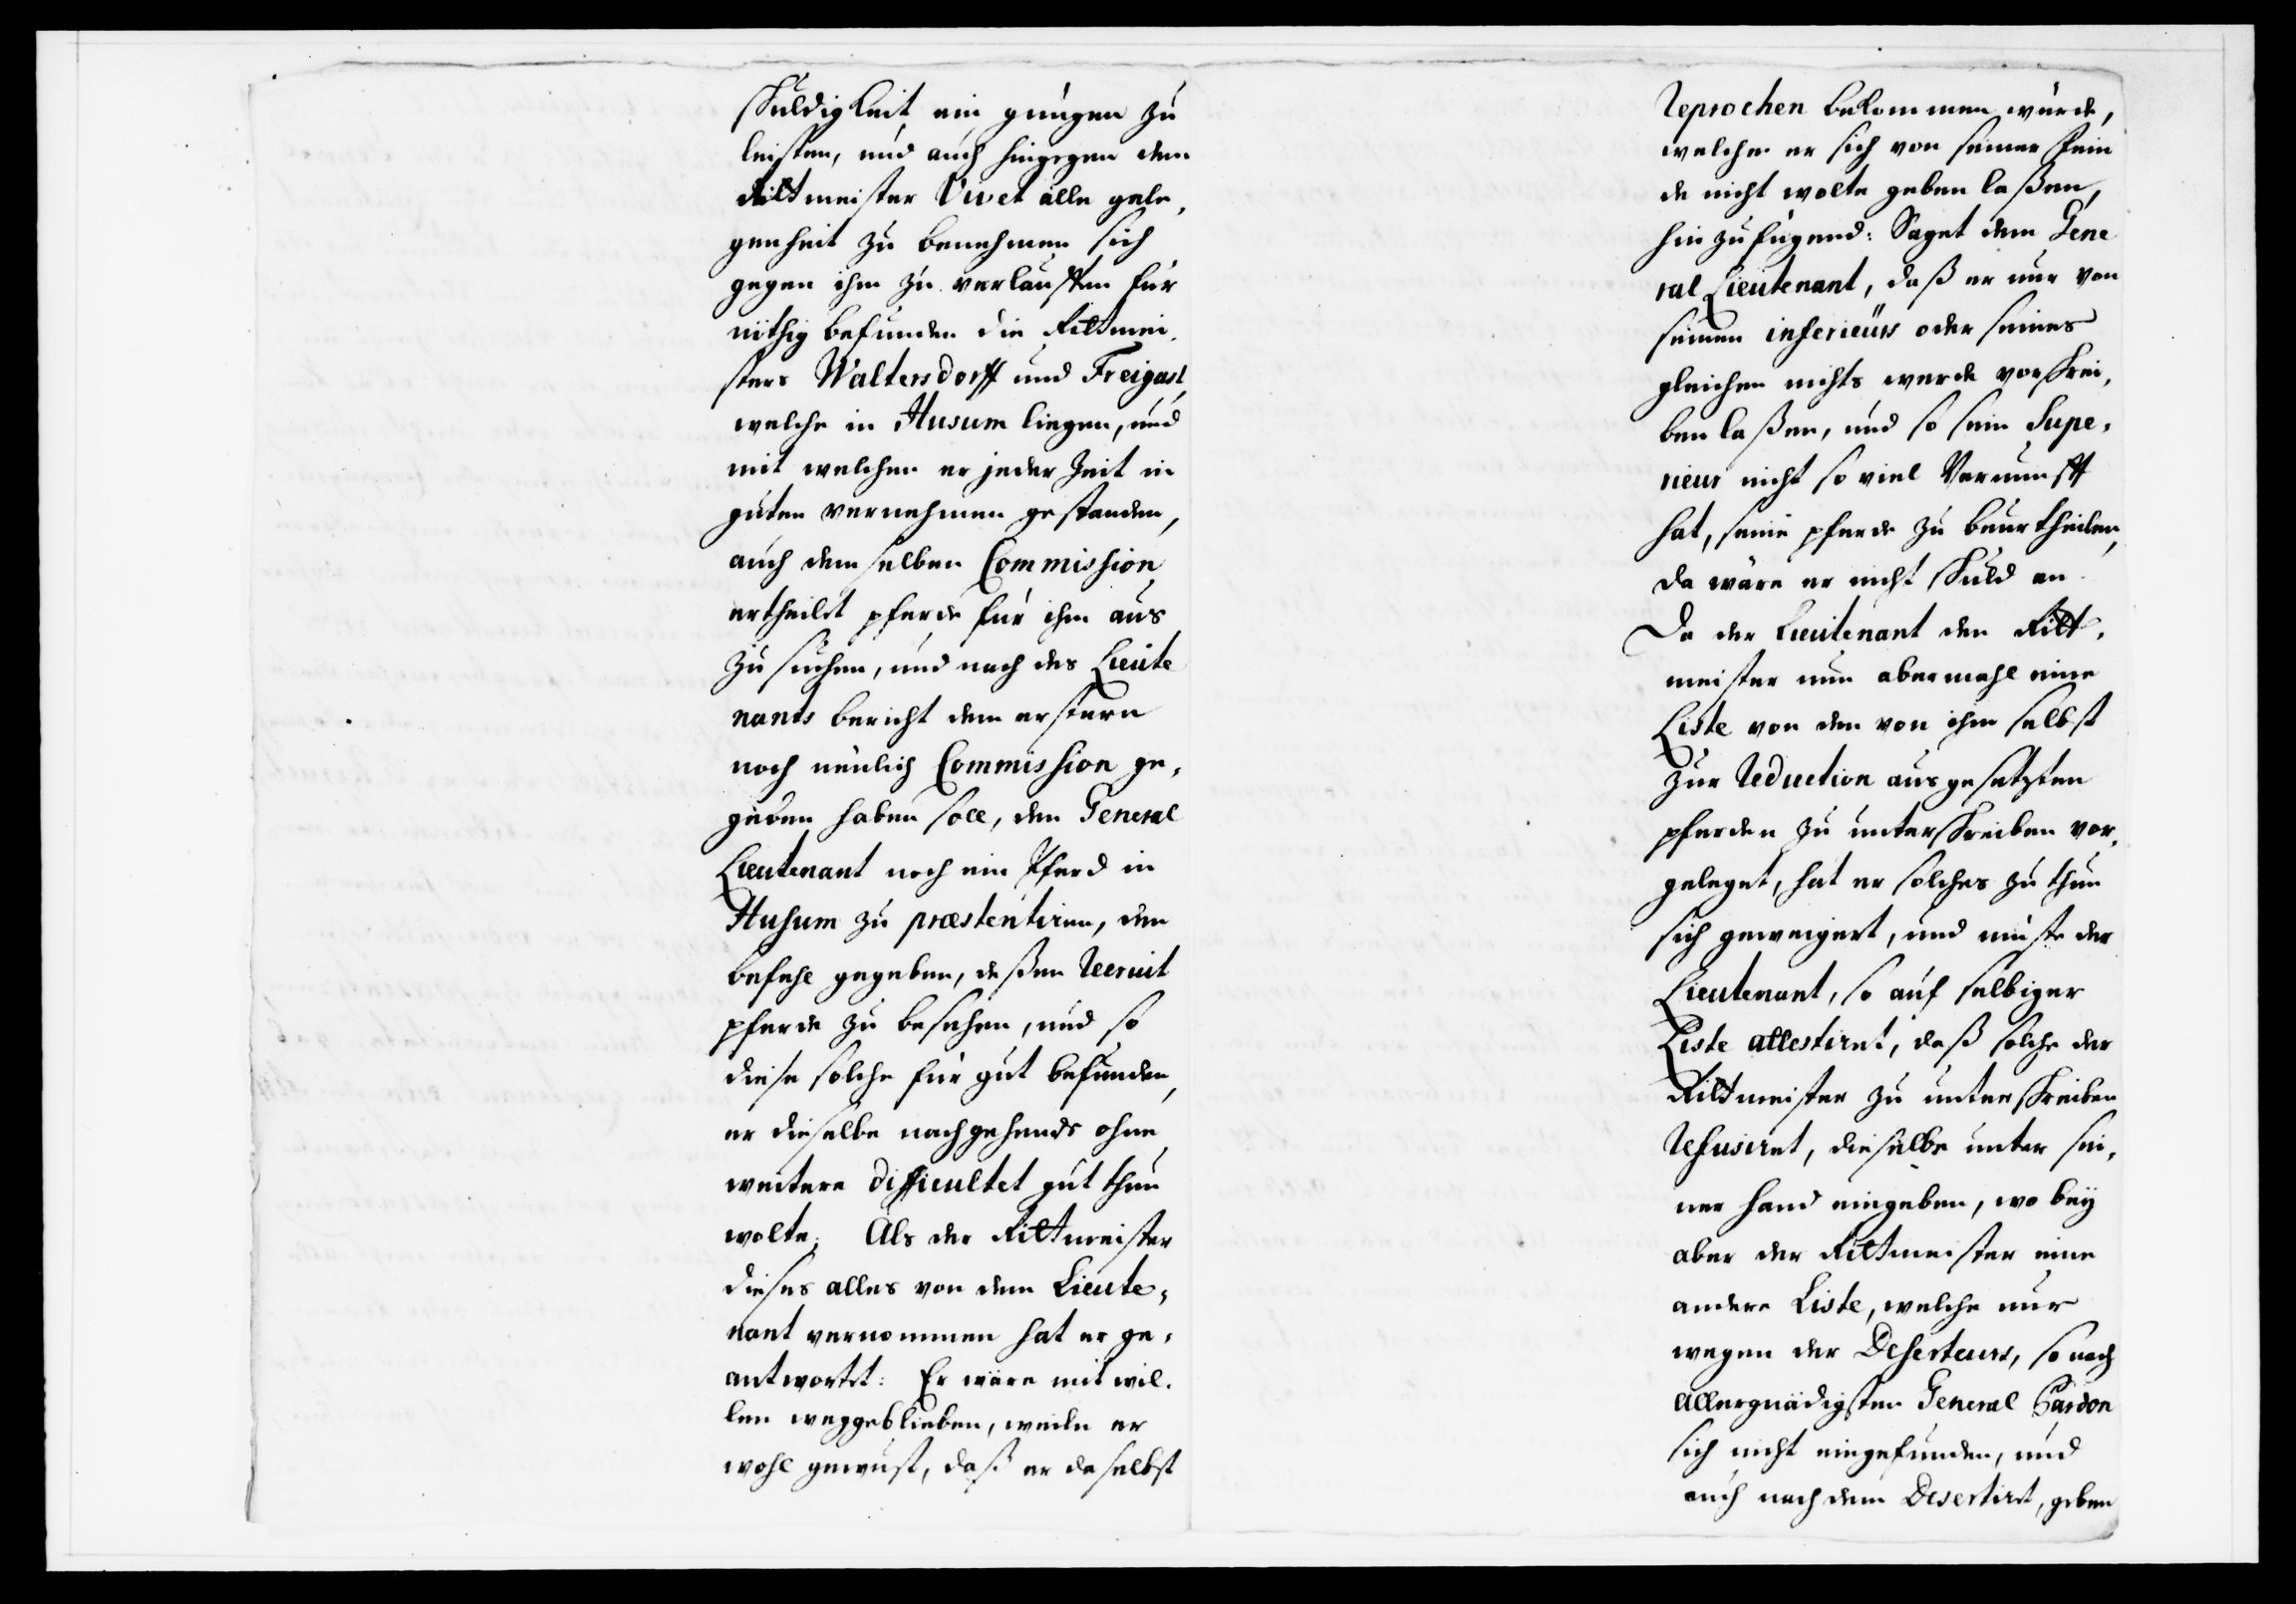 schuldigkeit ein gnügen zu
leisten, und auch hingegen dem
Rittmeister Vivet alle gele,
genheit zu benehmen sich
gegen ihm zu verlauffen für
nöthig befunden die Rittmei,
sters Waltersdorff und Freigast,
welche in Husum liegen, und
mit welchen er jeder Zeit in
guten vernehmen gestanden,
auch demselben Commission
ertheilet pferde für ihm aus
zu suchen, und nach des Lieute
nants bericht dem erstern
noch neulich Commission ge,
geben haben soll, dem General
Lieutenant noch ein Pferd in
Husum zu præstentiren, den
befehl gegeben, deßen Recruit
pferde zu besehen, und so
diese solche für gut befunden,
er dieselbe nachgehends ohne
weitere difficultet gut thun
wolte. Als der Rittmeister
dieses alles von dem Lieute,
nant vernommen hat er ge,
antwortet: Er wäre mit wil,
len weggeblieben, weiln er
wohl gewust, daß er daselbst
Reprochen bekommen würde,
welche er sich von seiner Fein
de nicht wolte geben laßen,
hinzufügend: Saget dem Gene
ral Lieutenant, daß er nur von
seinen inferieurs oder seines
gleichen nichts werde vorschrei,
ben laßen, und so sein Supe,
rieur nicht so viel Vernunfft
hat, seine pferde zu beurtheilen,
da wäre er nicht schuld an.
Da der Lieutenant den Ritt,
meister nun abermahl eine
Liste von den von ihm selbst
zur Reduction ausgesetzten
pferden zu unterschreiben vor,
geleget, hat er solches zu thun
sich geweigert, und muste der
Lieutenant, so auf selbiger
Liste attestiret, daß solche der
Rittmeister zu unterschreiben
Refusiret, dieselbe unter sei,
ner hand eingeben, wo bey
aber der Rittmeister eine
andere Liste, welche nur
wegen der Deserteurs, so nach
allergnädigsten General Pardon
sich nicht eingefunden, und
auch nach dem Desertiret, geben